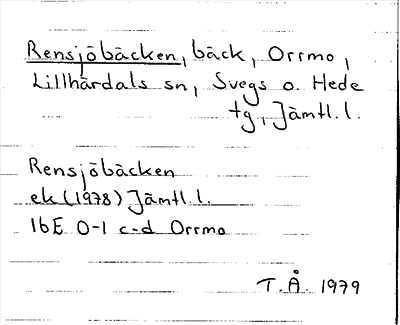 Rensjöbäcken, bäck, Orrmo,
Lillhärdals sn, Svegs o. Hede
tg, Jämtl. l.
Rensjöbäcken
ek (1978) Jämtl. l.
16E 0-1 c-d Orrmo
T.Å. 1979